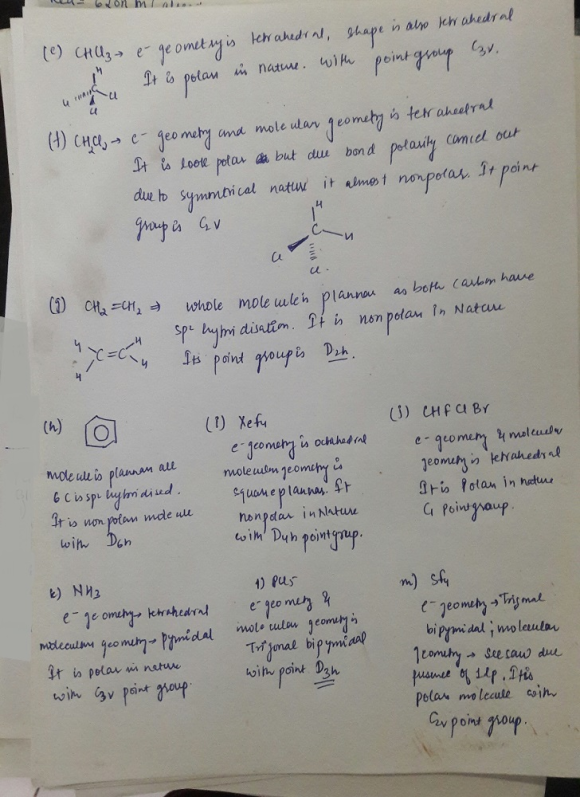 (e) CHCl3 → e- geometry is tetrahedral, shape is also tetrahedral
It is polar in nature. With point group C3v.
H
Cl C Cl
Cl
(f) CH2Cl2 → e- geometry and molecular geometry is tetrahedral
It is polar but due bond polarity cancel out
due to symmetrical nature it almost nonpolar. It point
group is C2v
H
C H
Cl
Cl
(g) CH2=CH2 ⇒ whole molecule is plannar as both carbon have
sp2 hybridisation. It is nonpolar in Nature
Its point group is D2h.
H H
C=C
H H
(h)
molecule is plannar all
6 C is sp2 hybridised.
It is nonpolar molecule
with D6h
(i) XeF4
e- geometry is octahedral
molecular geometry is
square plannar. It
nonpolar in Nature
with D4h pointgroup.
(j) CHFClBr
e- geometry & molecular
geometry is tetrahedral
It is Polar in nature
C1 Point group.
k) NH3
e- geometry → tetrahedral
molecular geometry → pymidal
It is polar in nature
with C3v point group.
l) PCl5
e- geometry &
molecular geometry is
Trigonal bipymidal
with point D3h
m) SF4
e- geometry → Trigonal
bipymidal; molecular
geometry → see saw due
presence of 1lp. It is
polar molecule with
C2v point group.